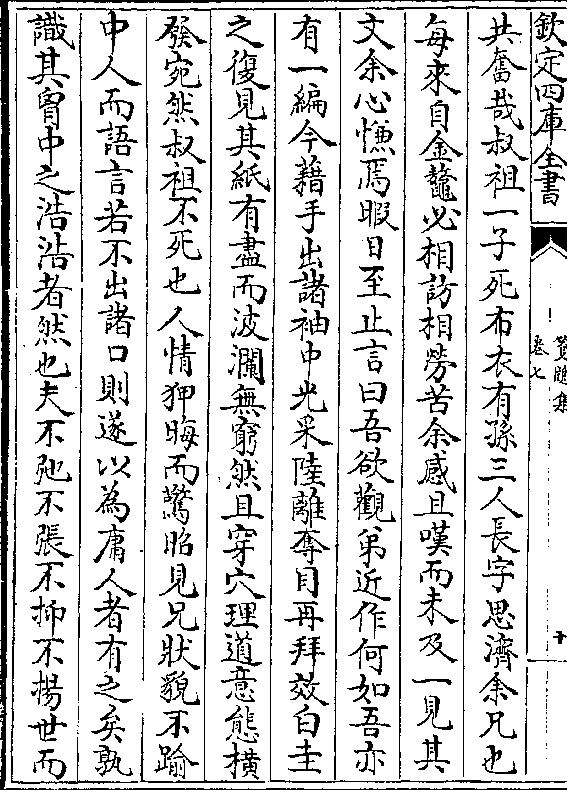 欽定四庫全書
卷七
共奮哉叔祖一子死布衣有孫三人長字思濟余兄也
每來自金鼇必相訪相勞苦余感且嘆而未及一見其
文余心慊焉暇日至止言曰吾欲觀弟近作何如吾亦
有一編今藉手出諸袖中光采陸離奪目再拜效白圭
之復見其紙有盡而波瀾無窮然且穿穴理道意態橫
發宛然叔祖不死也人情狎晦而驚昭見兄狀貌不踰
中人而語言若不出諸口則遂以為庸人者有之矣孰
識其胷中之浩浩者然也夫不弛不張不抑不揚世而